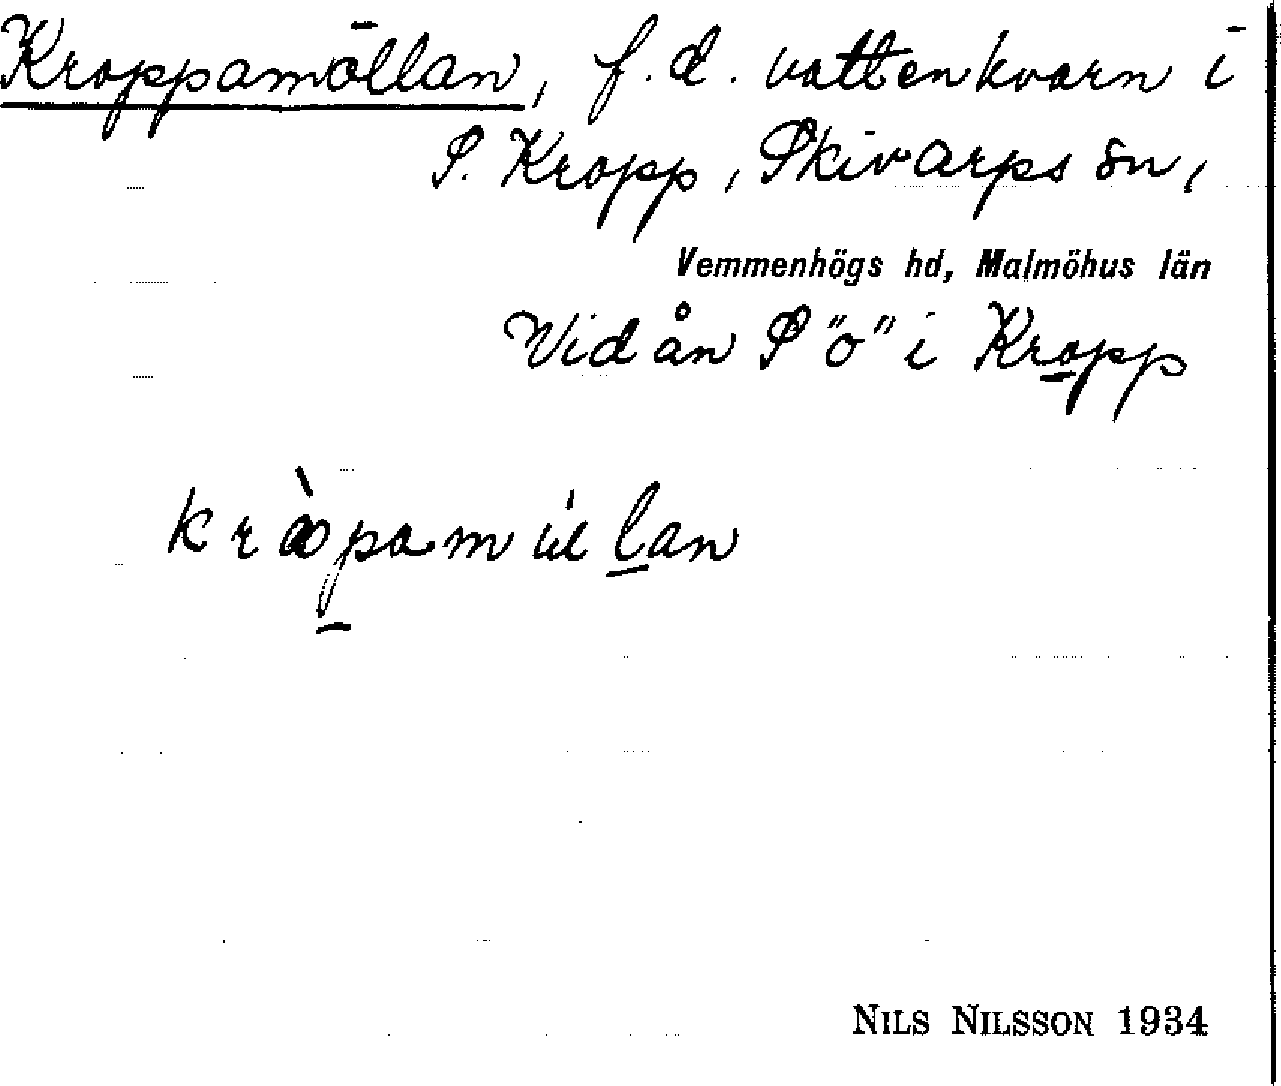 Kroppamöllan, f.d. vattenkvarn i
S. Kropp, Skivarps sn,
Vemmenhögs hd, Malmöhus län
Vid ån S "o" i Kropp
NILS NILSSON 1934